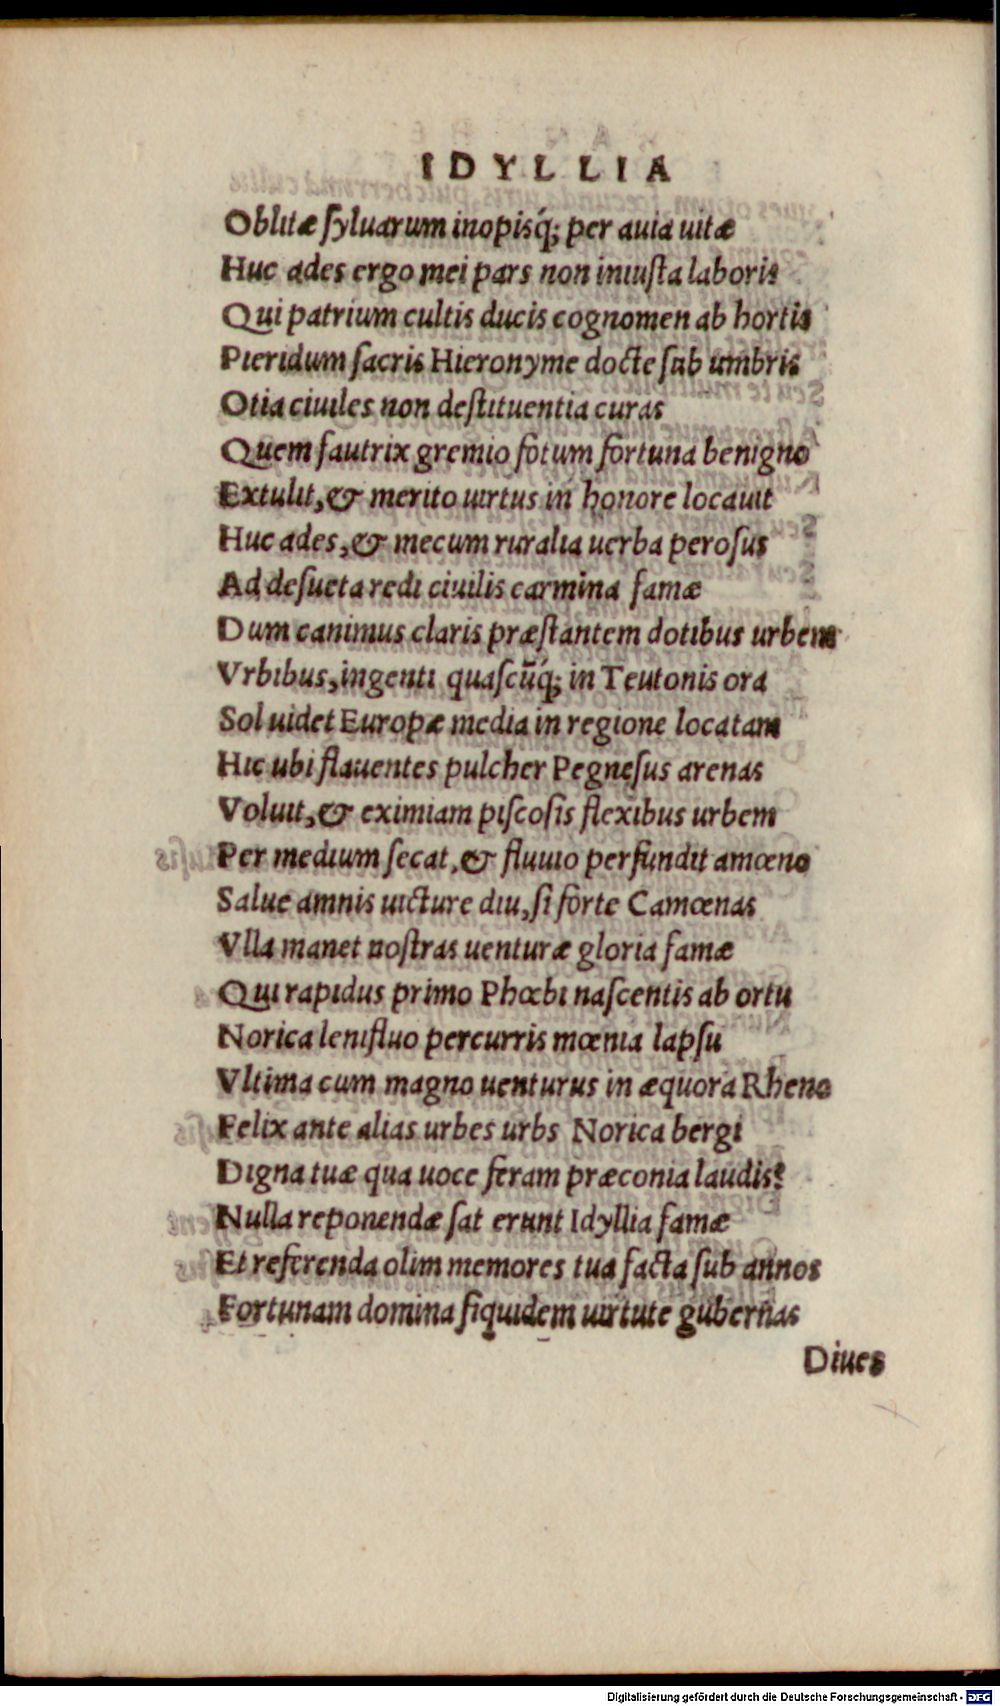 IDYLLIA
Oblitæ ſyluarum inopisq́; per auia uitæ
Huc ades ergo mei pars non iniuſta laboris
Qui patrium cultis ducis cognomen ab hortis
Pieridum ſacris Hieronyme docte ſub umbris
Otia ciuiles non deſtituentia curas
Quem fautrix gremio fotum fortuna benigno
Extulit, & merito uirtus in honore locauit
Huc ades, & mecum ruralia uerba peroſus
Ad deſueta redi ciuilis carmina famæ
Dum canimus claris præſtantem dotibus urbem
Vrbibus, ingenti quaſcūq́; in Teutonis ora
Sol uidet Europæ media in regione locatam
Hic ubi flauentes pulcher Pegneſus arenas
Voluit, & eximiam piſcoſis flexibus urbem
Per medium ſecat, & fluuio perfundit amœno
Salue amnis uicture diu, ſi forte Camœnas
Vlla manet noſtras uenturæ gloria famæ
Qui rapidus primo Phœbi naſcentis ab ortu
Norica lenifluo percurris mœnia lapſu
Vltima cum magno uenturus in æquora Rheno
Felix ante alias urbes urbs Norica bergi
Digna tuæ qua uoce feram præconia laudis?
Nulla reponendæ ſat erunt Idyllia famæ
Et referenda olim memores tua facta ſub annos
Fortunam domina ſiquidem uirtute gubernas
Diues
Digitalisierung gefördert durch die Deutsche Forschungsgemeinschaft - DFG